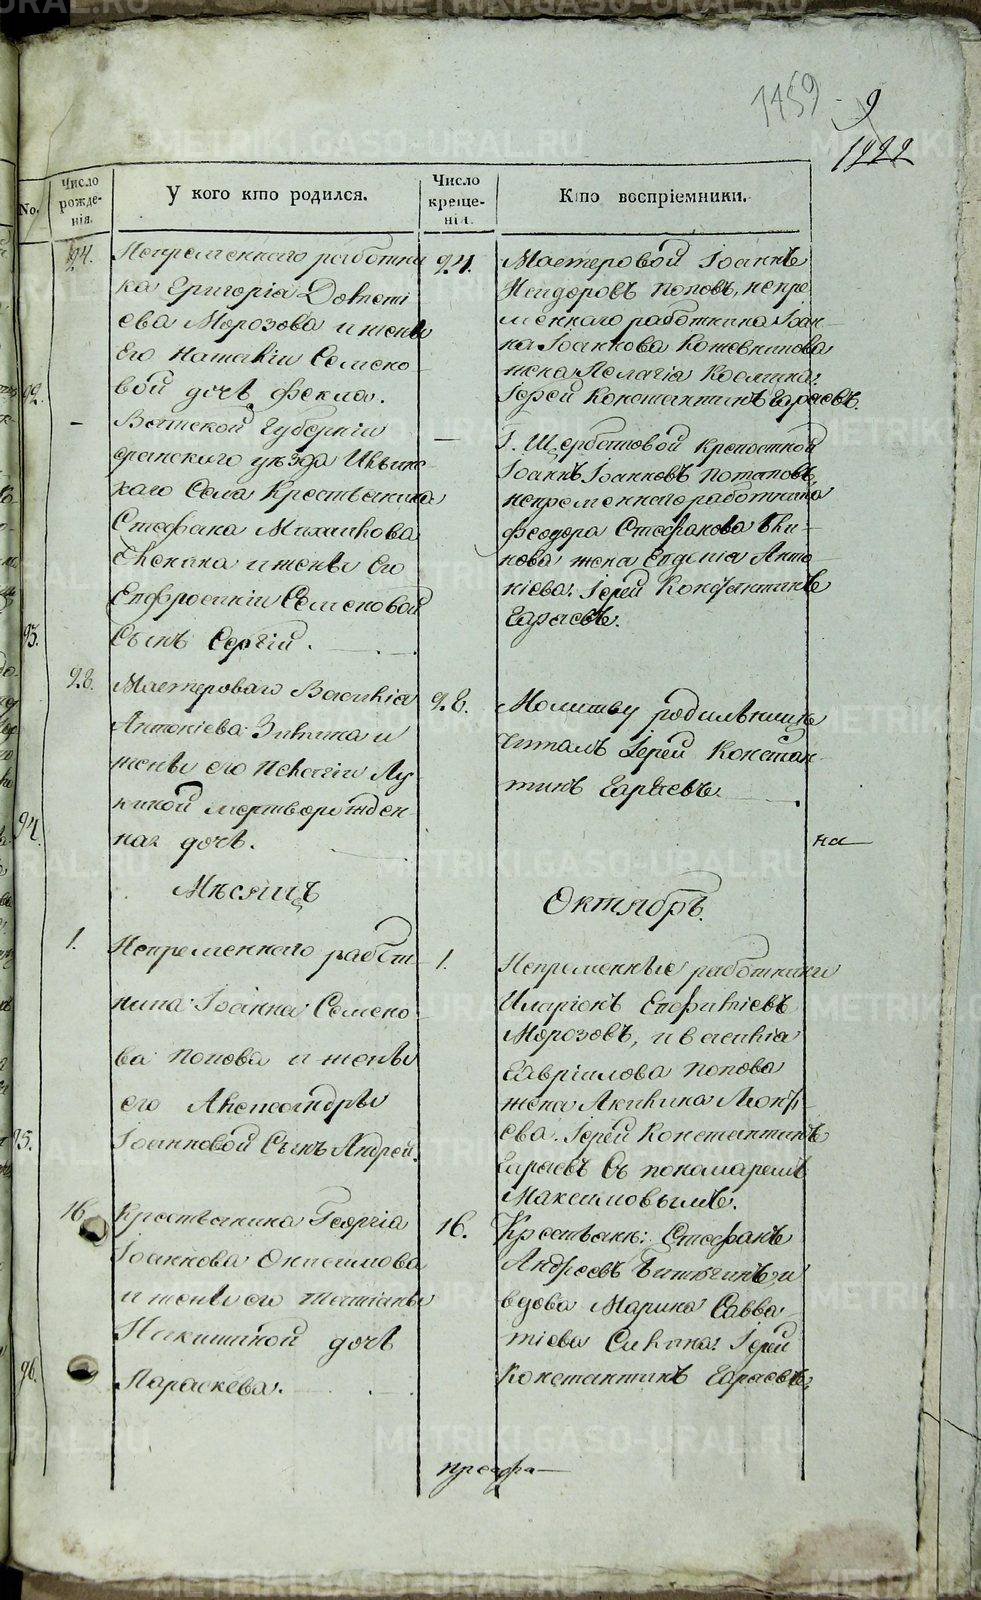 1459
9
1222
No.
Число рожде-нія.
У кого кто родился.
Число креще-нія.
Кто воспріемники.
92.
24.
Непременнаго работни
ка Григорія
ева Морозова и жены
Его Наталіи Семено
вой дочь Фекла.
24.
Мастеровой Іоаннъ
Поповъ, непре
меннаго работника Іоан-
на Іоаннова Кожевникова
жена Пелагіа Космина:
Іерей Константинъ Гаряевъ.
93.
Вятской Губерніи
уезда
каго Села Крестьянина
Стефана Михайлова
и жены Его
Евфросиніи Семеновой
Сынъ Сергій.
Г. Щербатовой Крепостной
Іоаннъ Іоанновъ Потаповъ,
непременнаго работника
Феодора Стефанова
нова жена Евдокіа Анто
ніева: Іерей Константинъ
Гаряевъ.
94.
28.
Мастероваго Василіа
Антоніева и
жены его Пелагіи Лу
киной мертворожден-
ная дочь.
28.
Молитву родильнице
читалъ Іерей Констан-
тинъ Гаряевъ.
на
Мѣсяцъ
Октябрь.
95.
1.
Непременнаго работ-
ника Іоанна Семено
ва Попова и жены
его Александры
Іоанновой Сынъ Андрей.
1.
Непременные работники
Иларіонъ
Морозовъ, и Василіа
Гавріилова Попова
жена Акилина Леонт-
ева. Іерей Константинъ
Гаряевъ Съ пономаремъ
Максимовымъ.
96.
16.
Крестьянина Георгіа
Іоаннова Онисимова
и жены его Татіаны
Никитиной дочь
Параскева.
16.
Крестьян: Стефанъ
Андреевъ и
вдова Марина Савва-
тіева Іерей
Константинъ Гаряевъ.